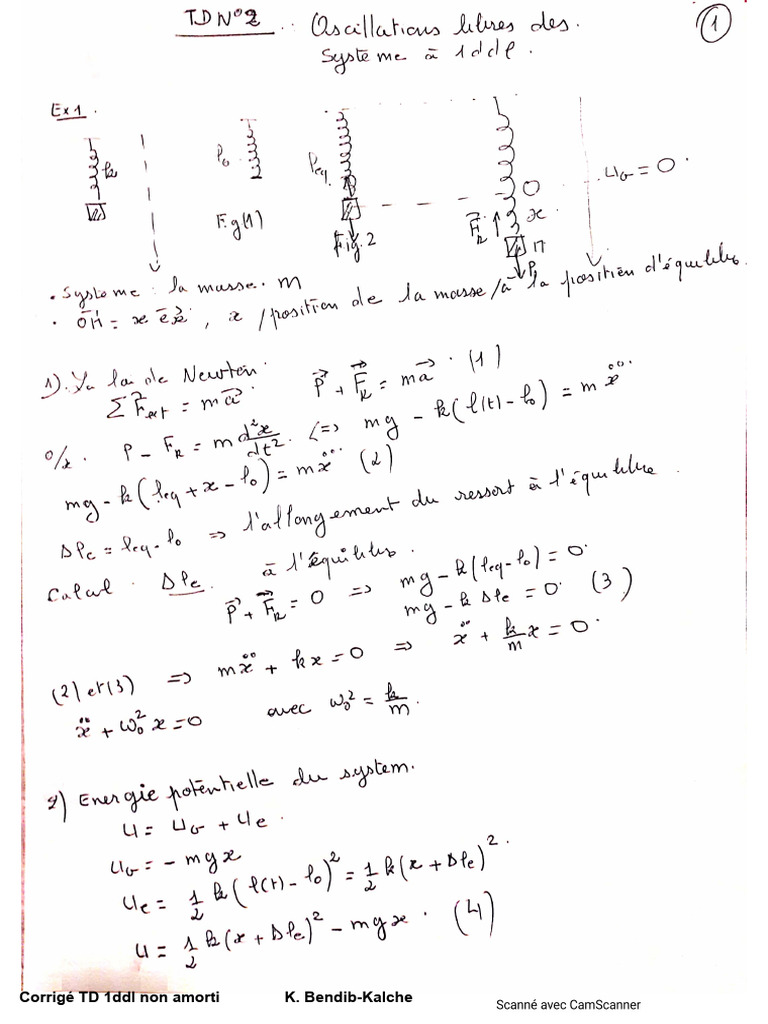 TD N°2 : Oscillations libres des
Système à 1ddl.
1
Ex1.
k
l₀
Fig(1)
leq
Fig.2
O
x
F⃗k
M
P
uG = 0.
• Système : la masse. m
• OM⃗ = x e⃗x, x / position de la masse / à la position d'équilibre.
1). La loi de Newton.
ΣF⃗ext = ma⃗. P⃗ + F⃗k = ma⃗. (1)
o/x. P - Fk = m d²x/dt². <=> mg - k(l(t) - l₀) = mẍ
mg - k(leq + x - l₀) = mẍ (2)
Δle = leq - l₀ => l'allongement du ressort à l'équilibre.
Calcul. Δle. à l'équilibre.
P⃗ + F⃗k = 0 => mg - k(leq - l₀) = 0.
mg - k Δle = 0. (3)
(2) et (3) => mẍ + kx = 0 => ẍ + k/m x = 0.
ẍ + ω₀² x = 0 avec ω₀² = k/m.
2) Energie potentielle du system.
U = UG + Ue.
UG = - mgx
Ue = 1/2 k(l(t) - l₀)² = 1/2 k(x + Δle)².
U = 1/2 k(x + Δle)² - mgx. (4)
Corrigé TD 1ddl non amorti K. Bendib-Kalche
Scanné avec CamScanner